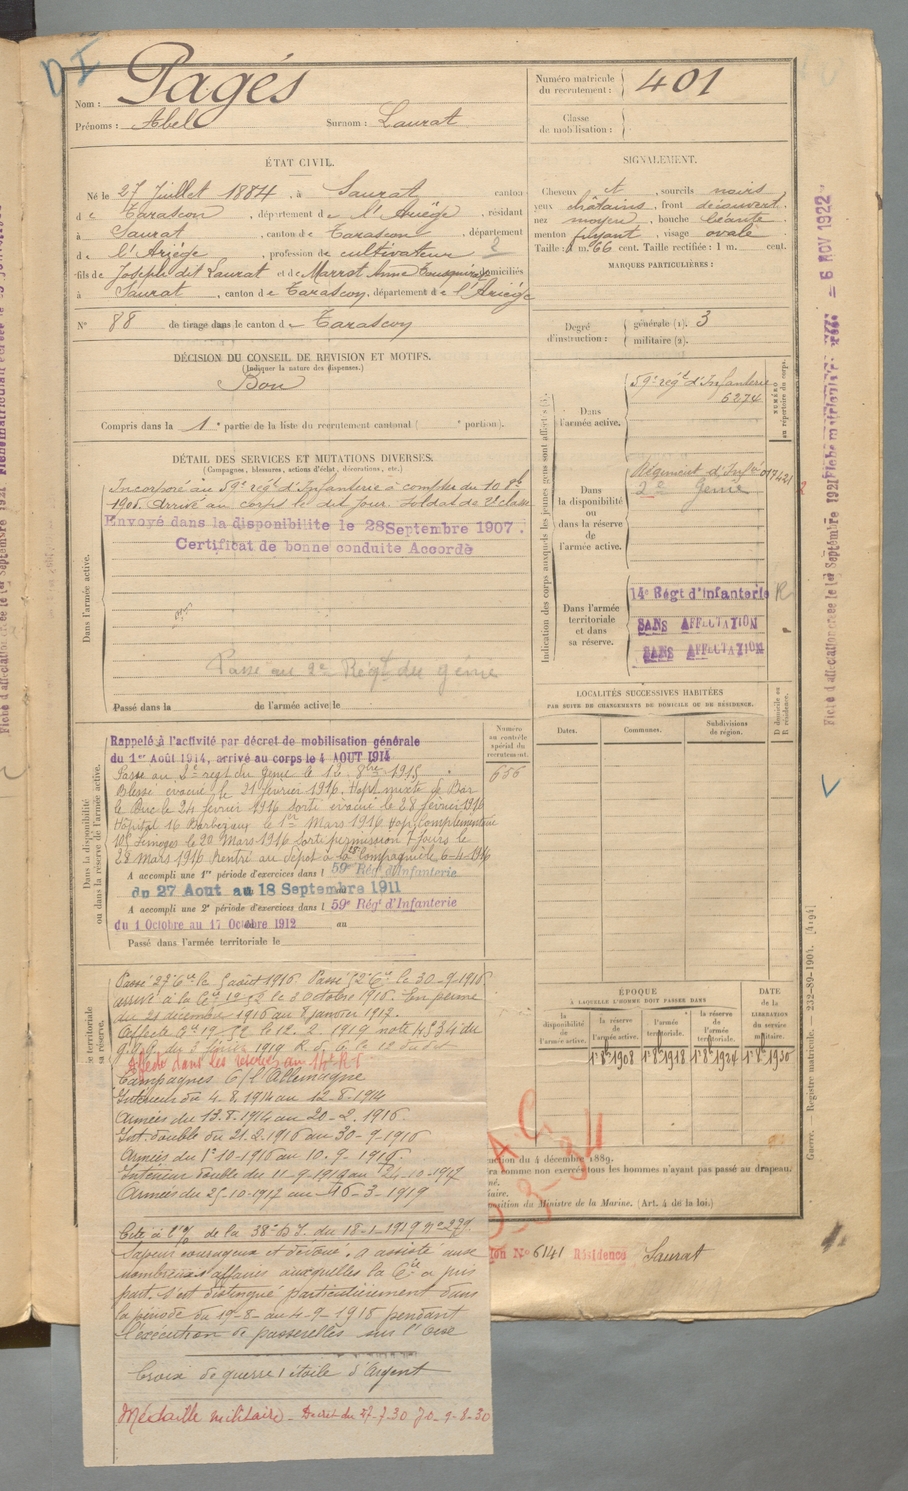 Nom : Pagés
Prénoms : Abel Surnom : Laurat
Numéro matricule du recrutement : 401
Classe de mobilisation :
ÉTAT CIVIL.
Né le 27 Juillet 1884, à Saurat, canton
de Tarascon, département de l'Ariège, résidant
à Saurat, canton de Tarascon, département
de l'Ariège, profession de cultivateur 2
fils de Joseph dit Laurat et de Marrot Anne domiciliés
à Saurat, canton de Tarascon, département de l'Ariège
N° 88 de tirage dans le canton de Tarascon
SIGNALEMENT.
Cheveux et, sourcils noirs
yeux châtains, front découvert
nez moyen, bouche béante
menton fuyant, visage ovale
Taille : 1 m. 66 cent. Taille rectifiée : 1 m. cent.
MARQUES PARTICULIÈRES :
Degré d'instruction : générale (1). 3
militaire (2).
DÉCISION DU CONSEIL DE REVISION ET MOTIFS.
(Indiquer la nature des dispenses.)
Bon
Compris dans la 1e partie de la liste du recrutement cantonal ( e portion).
DÉTAIL DES SERVICES ET MUTATIONS DIVERSES.
(Campagnes, blessures, actions d'éclat, décorations, etc.)
Dans l'armée active.
Incorporé au 59e régt d'Infanterie à compter du 10 8bre
1905. Arrivé au corps le dit jour. Soldat de 2e classe
Envoyé dans la disponibilite le 28 Septembre 1907.
Certificat de bonne conduite Accordé
Passé au 2e Régt du génie
Passé dans la de l'armée active le
Indication des corps auxquels les jeunes gens sont affectés
NUMÉRO au répertoire du corps.
Dans l'armée active.
59e régt d'Infanterie
6274
Dans la disponibilité ou dans la réserve de l'armée active.
Régiment d'Infie 017421
2e Génie
Dans l'armée territoriale et dans sa réserve.
14e Régt d'Infanterie R
SANS AFFECTATION
SANS AFFECTATION
LOCALITÉS SUCCESSIVES HABITÉES
PAR SUITE DE CHANGEMENTS DE DOMICILE OU DE RÉSIDENCE.
Dates. Communes. Subdivisions de région. D domicile ou R résidence.
Dans la disponibilité ou dans la réserve de l'armée active.
Numéro au contrôle spécial du recrutement.
Rappelé à l'activité par décret de mobilisation générale
du 1er Août 1914, arrivé au corps le 4 AOUT 1914
Passé au 2e régt du génie le 12 8bre 1915.
Blessé évacué le 21 février 1916. Hop. mixte de Bar
le Duc le 24 février 1916 sorti évacué le 28 février 1916
Hôpital 16 Barbezieux le 1er Mars 1916 Hop. complémentaire
105 Limoges le 20 Mars 1916 sorti permission 7 jours le
28 Mars 1916 rentré au dépôt à la compagnie le 6-4-1916
A accompli une 1re période d'exercices dans l 59e Rég d'Infanterie
du 27 Aout au 18 Septembre 1911
A accompli une 2e période d'exercices dans l 59e Rég d'Infanterie
du 1 Octobre au 17 Octobre 1912 au
Passé dans l'armée territoriale le
territoriale sa réserve.
Passé 27e Cie le 5 août 1916. Passé Cie le 30-9-1916
arrivé à la Cie le 3 Octobre 1916. En perme
du 28 décembre 1916 au 8 janvier 1917.
Affecté Cie 19 le 12. 2. 1919 note du
G.Q.G. du 3 février 1919
Affecté dans les réserves au 14e R.I
Campagnes C/ l'Allemagne
Intérieur du 4.8.1914 au 12-8-1914
Armées du 13.8-1914 au 20-2-1916
Int. double du 21.2.1916 au 30-9-1916
Armées du 1er 10-1916 au 10.9-1916
Intérieur double du 11-9-1917 au 24-10-1917
Armées du 25-10-1917 au 16-3-1919
Cité à l'O/ de la 38e D.I. du 18-1-1919 n° 279
Sapeur courageux et dévoué. a assisté aux
nombreuses affaires auxquelles la Cie a pris
part. S'est distingué particulièrement dans
la période du 19-8- au 4-9-1918 pendant
l'exécution de passerelles sur l'Oise
Croix de guerre 1 étoile d'Argent
Médaille militaire. Decret du 27-7-30 JO-9-8-30
ÉPOQUE
À LAQUELLE L'HOMME DOIT PASSER DANS
la disponibilité de l'armée active.
la réserve de l'armée active.
l'armée territoriale.
la réserve de l'armée territoriale.
DATE de la LIBÉRATION du service militaire.
1er 8bre 1908 1er 8bre 1918 1er 8bre 1924 1er 8bre 1930
du 4 décembre 1889.
comme non exercés tous les hommes n'ayant pas passé au drapeau.
position du Ministre de la Marine. (Art. 4 de la loi.)
N° 6141 Résidence Saurat
Guerre. — Registre matricule. — 232-89-1904. [4194]